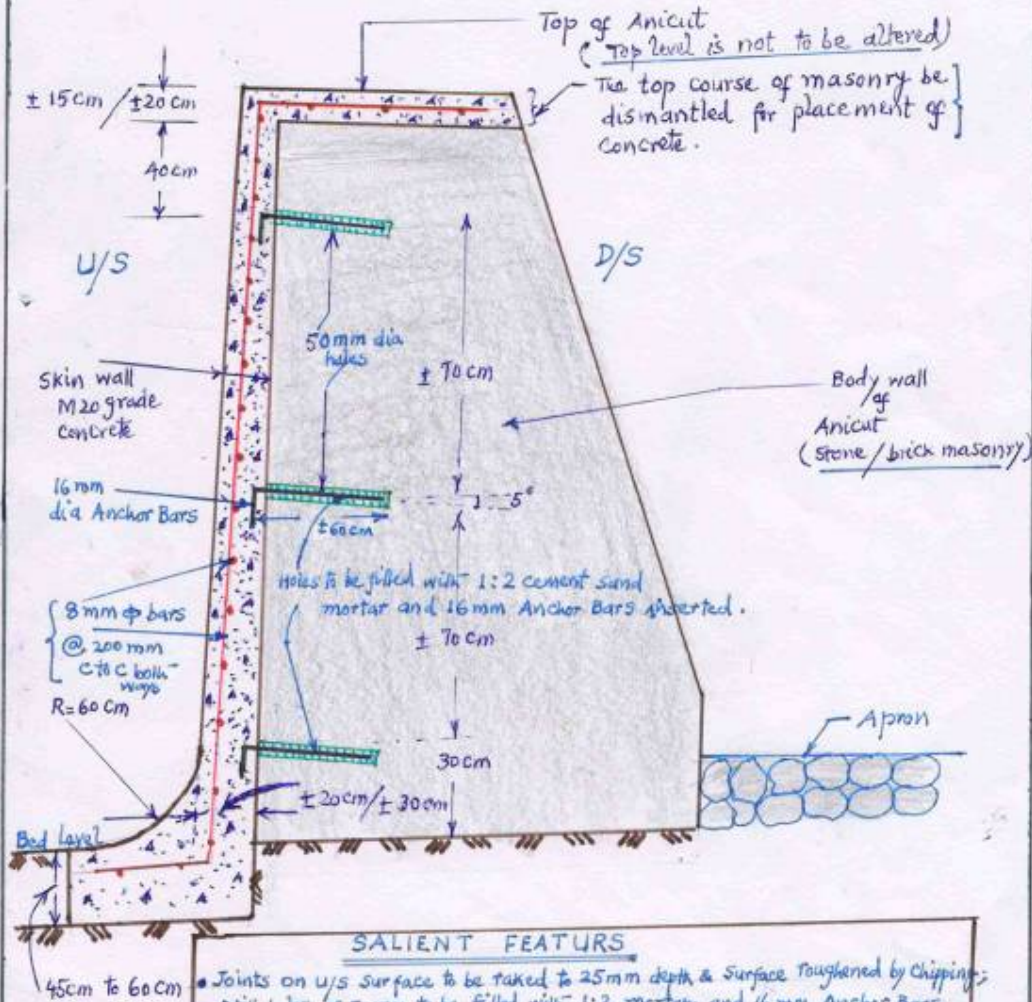 Top of Anicut
(Top level is not to be altered)
The top course of masonry be
dismantled for placement of
concrete.
± 15cm / ±20cm
40cm
U/S
D/S
50mm dia
holes
± 70cm
Skin wall
M20 grade
concrete
Body wall
of
Anicut
(stone/brick masonry)
16mm
dia Anchor Bars
5°
±60cm
Holes to be filled with 1:2 cement sand
mortar and 16mm Anchor Bars inserted.
8mm φ bars
@ 200mm
C to C both
ways
± 70cm
R=60cm
Apron
30cm
±20cm/±30cm
Bed level
SALIENT FEATURS
45cm to 60cm
• Joints on u/s surface to be raked to 25mm depth & Surface roughened by Chipping;
to be filled with 1:2 mortar and 16mm Anchor